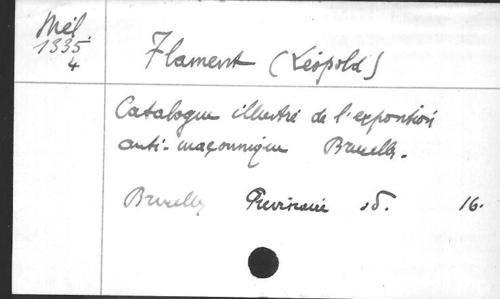 Mél.
1335
4
Flament (Léopold)
Catalogue illustré de l'exposition
anti-maçonnique Bruxelles.
Bruxelles sd. 16.